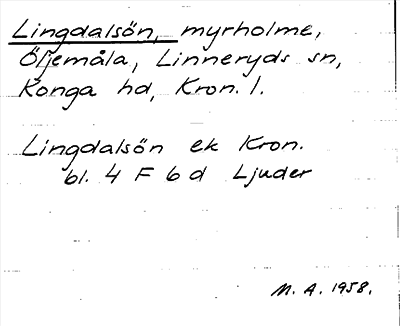 Lingdalsön, myrholme,
Öljemåla, Linneryds sn,
Konga hd, Kron. l.
Lingdalsön ek Kron.
bl. 4 F 6 d Ljuder
M. A. 1958.